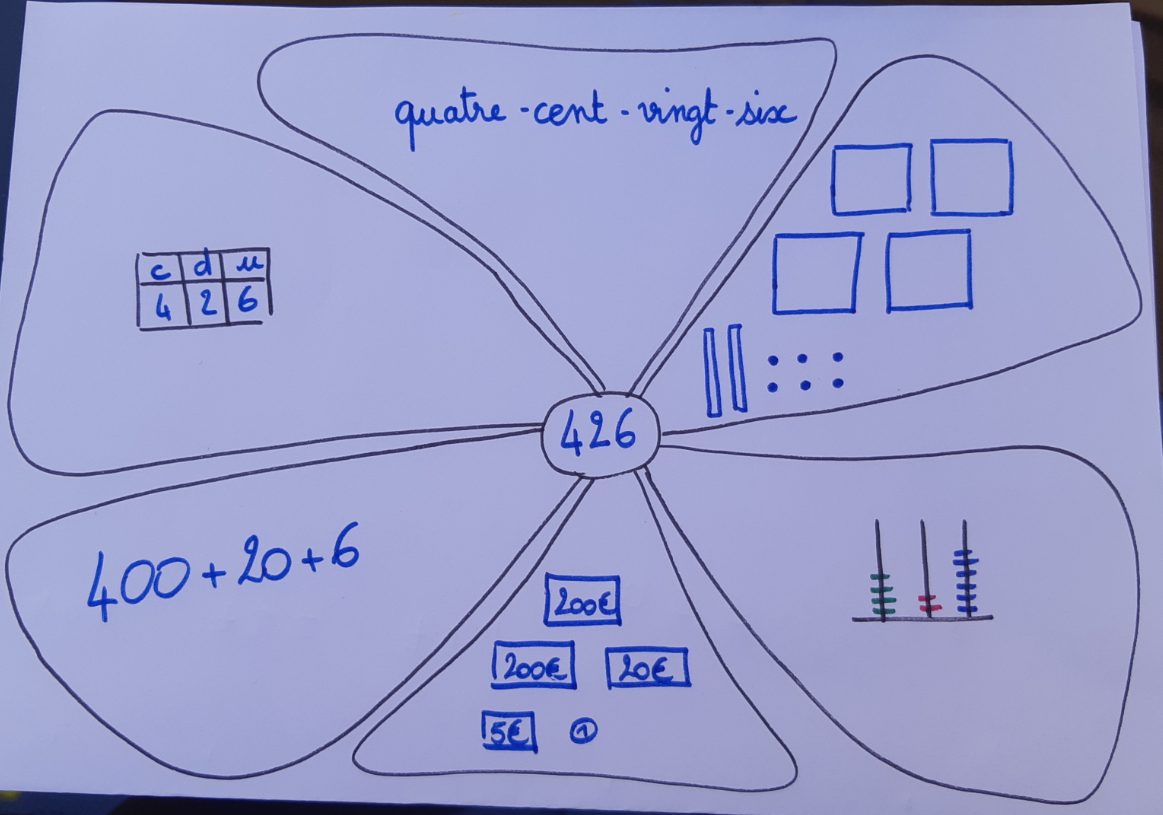 quatre-cent-vingt-six
c d u
4 2 6
426
400+20+6
200€
200€ 20€
5€ 1